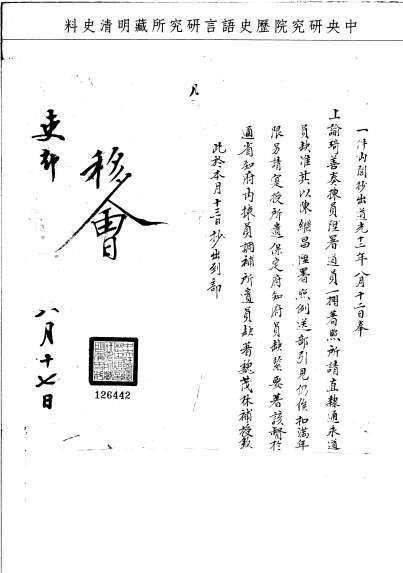 中央研究院歷史語言研究所藏明清史料
一件內閣抄出道光十二年八月十二日奉
上諭琦善奏揀員陞署道員一摺著照所請直隸通永道
員缺准其以陳繼昌陞署照例送部引見仍俟扣滿年
限另請實授所遺保定府知府員缺緊要著該督於
通省知府內揀員調補所遺員缺著魏茂林補授欽
此於本月十三日抄出到部
移會
吏部
八月十七日
126442